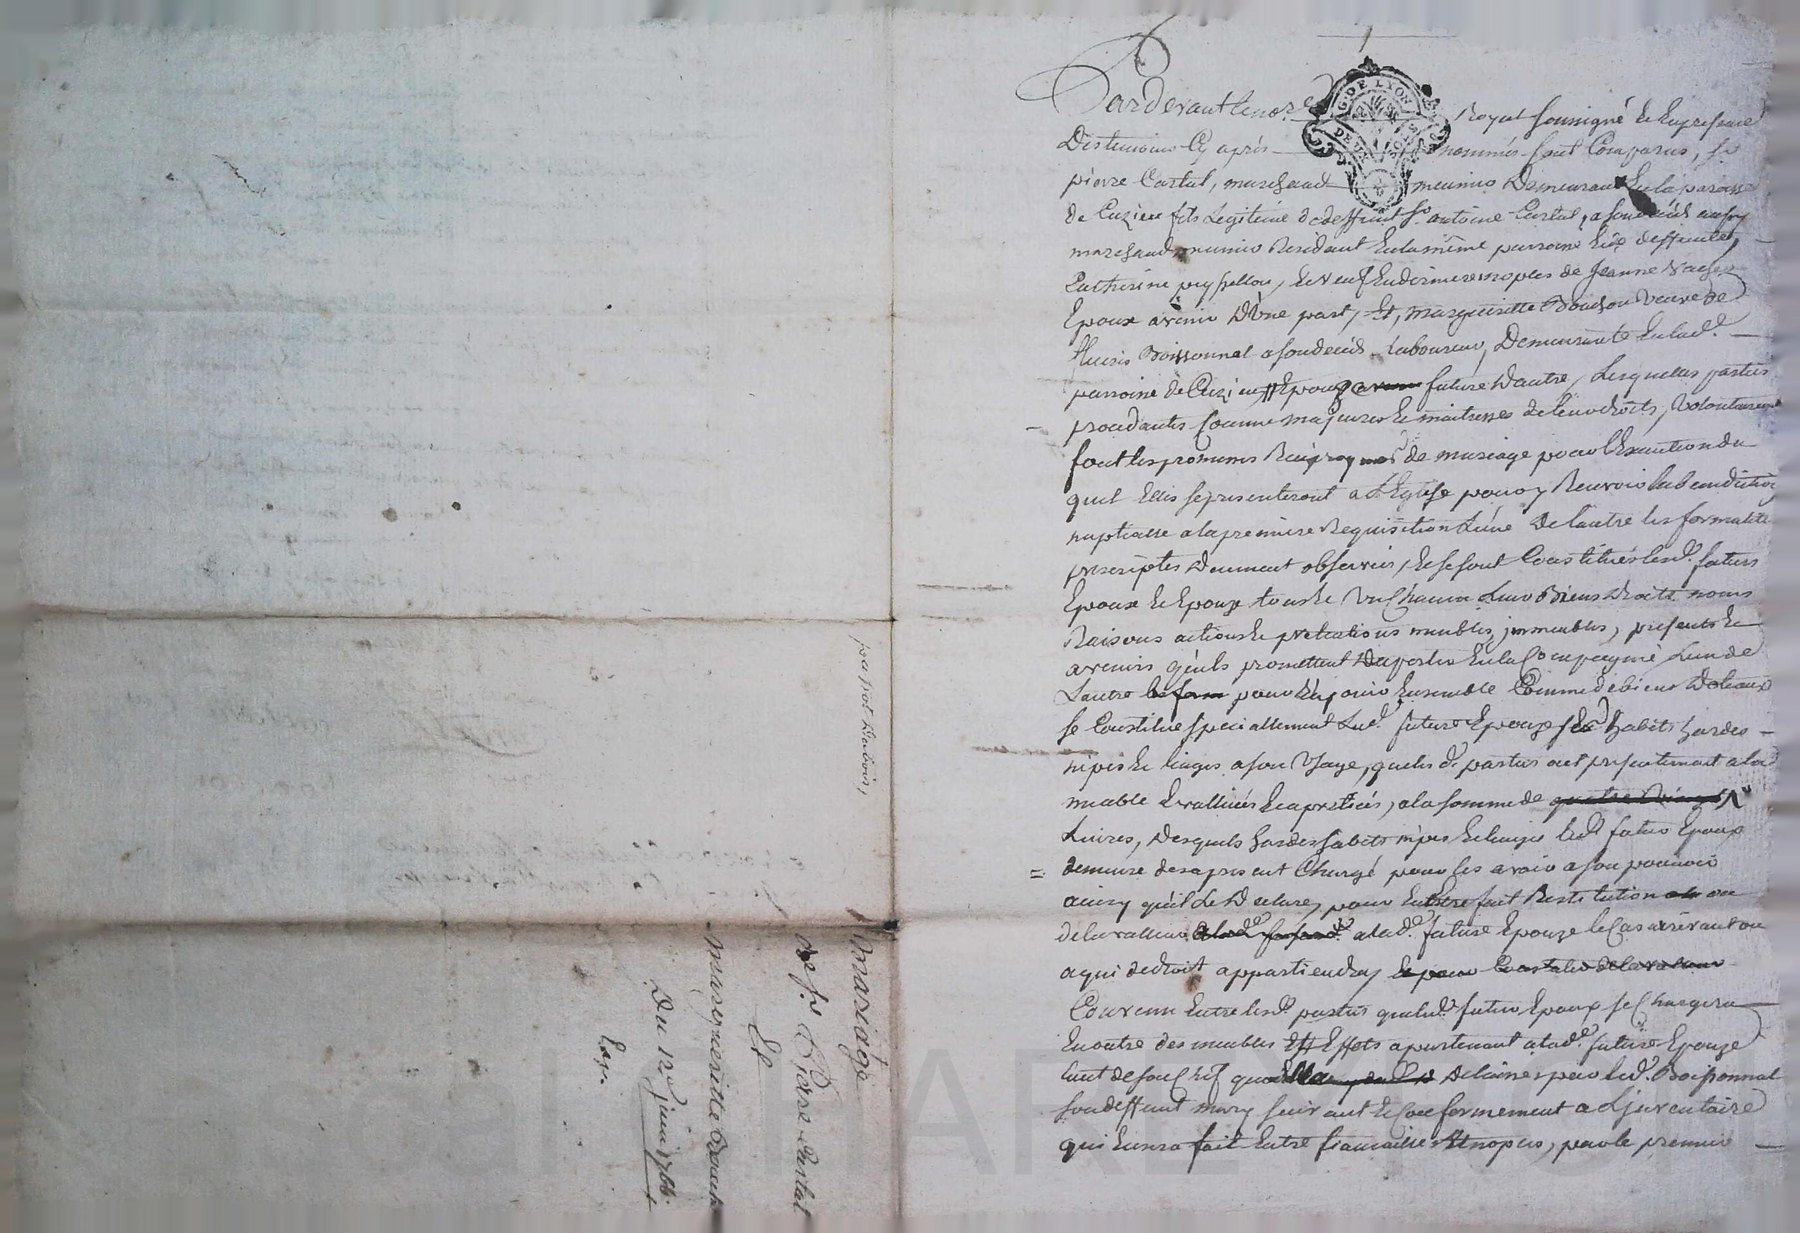 Pardevant le no.re Royal soussigné et en presence
Des temoins Cy après nommés sont Comparus, sr
pierre Cartal, marchand meunier Demeurant en la paroisse
de Cuzieu fils Legitime de deffunt sr antoine Cartal, a son deces aussy
marchand meunier Residant en la même parroisse et de deffunte
Catherine et veuf en dernieres nopces de Jeanne
Epoux avenir D'une part, Et, margueritte Bouchou veuve de
Boissonnal a son deces Laboureur, Demeurante en lad.e
parroisse de Cuzieu Epouze future D'autre, Lesquelles parties
procedantes comme majeures et maitresses de leurs droits, volontairement
font les promesses Reciproques de mariage pour l'Execution du
quel Elles se presenteront a L'Eglise pour y Recevoir la benediction
nuptialle a la premiere Requisition L'une De l'autre les formalités
prescriptes Deument observées, et se sont Constitués lesd. futurs
Epoux et Epouze tous et Un Chacun Leurs Biens Droits noms
Raisons actions et pretentions meubles, immeubles, presents et
avenirs qu'ils promettent D'aporter en la Compagnie L'un de
L'autre pour En jouir Ensemble Comme de biens Dotaux
se Constitue specialement Lad.e future Epouze ses habits hardes
nipes et linges a son Usage, que lesd. parties ont presentement a la
miable Evalluées et apretiées, a la somme de
Livres, Desquels hardes habits nipes et linges led. futur Epoux
demeure des a present Chargé pour les avoir a son pouvoir
ainsy qu'il Le Declare, pour En Etre fait Restitution ou
de la valleur a lad.e future Epouze le Cas arrivant ou
a qui de droit appartiendra,
Convenu Entre lesd. parties que led. futur Epoux se Chargera
En outre des meubles Et Effets apartenant a lad.e future Epouze
tant de son Chef que Delaissés par led. Boissonnal
son deffunt mary suivant et Conformement a L'inventaire
qui En sera fait Entre fiancailles Et nopces, par le premier
par not Dubois,
mariage
de sr Pierre Cartal
Et
marguerite Bouchou
Du 12e juin 1766
Exp.
G. DE LYON